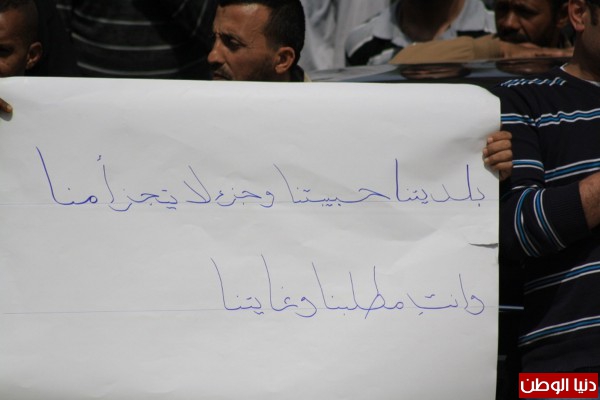 بلديتنا حبيبتنا وجزء لا يتجزأ منا
وانتِ مطلبنا وغايتنا
دنيا الوطن